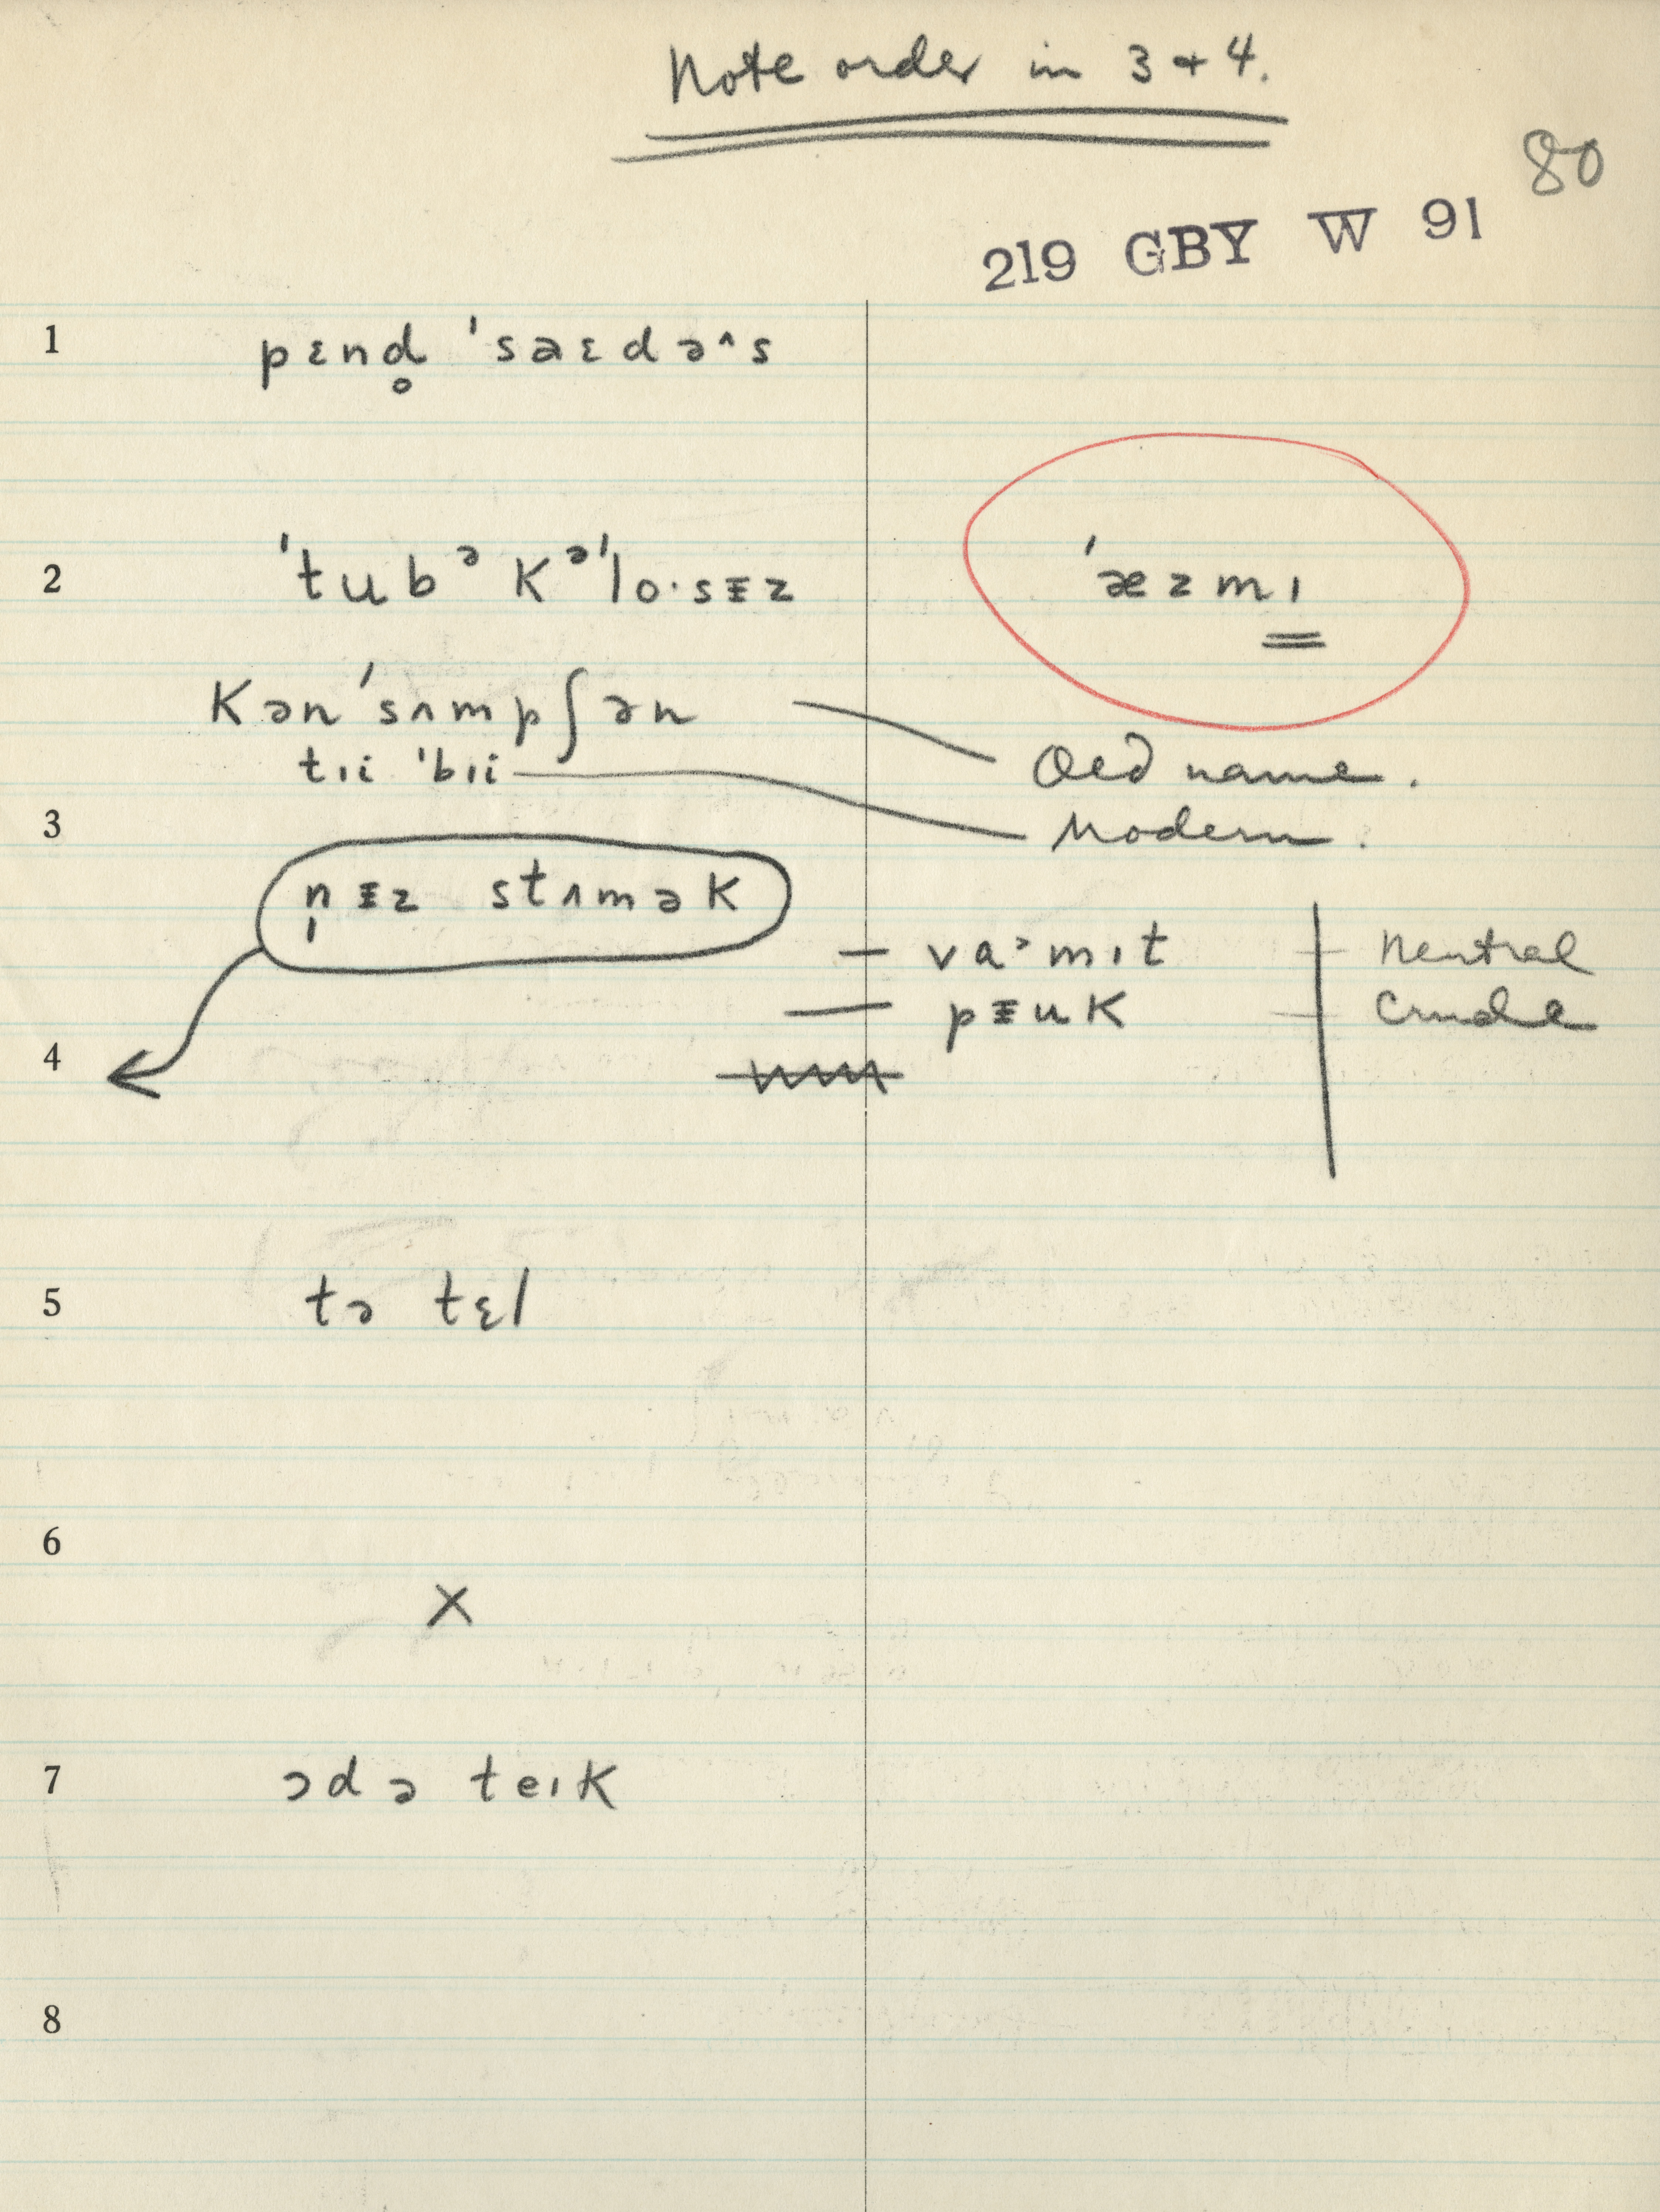 Note order in 3 + 4.
80
219 GBY W 91
1 pɛnd̥ ˈsaɛdə^s
2 ˈtubᵊkᵊˈlo·sᵻz ˈæzmɪ
kənˈsʌmpʃən Old name.
tɪi ˈbɪi Modern.
3
n̩ᵻz stʌmək
— va˃mɪt — Neutral
— pᵻuk — Crude
4
5 tə tɛl
6
X
7 ɔdə teɪk
8